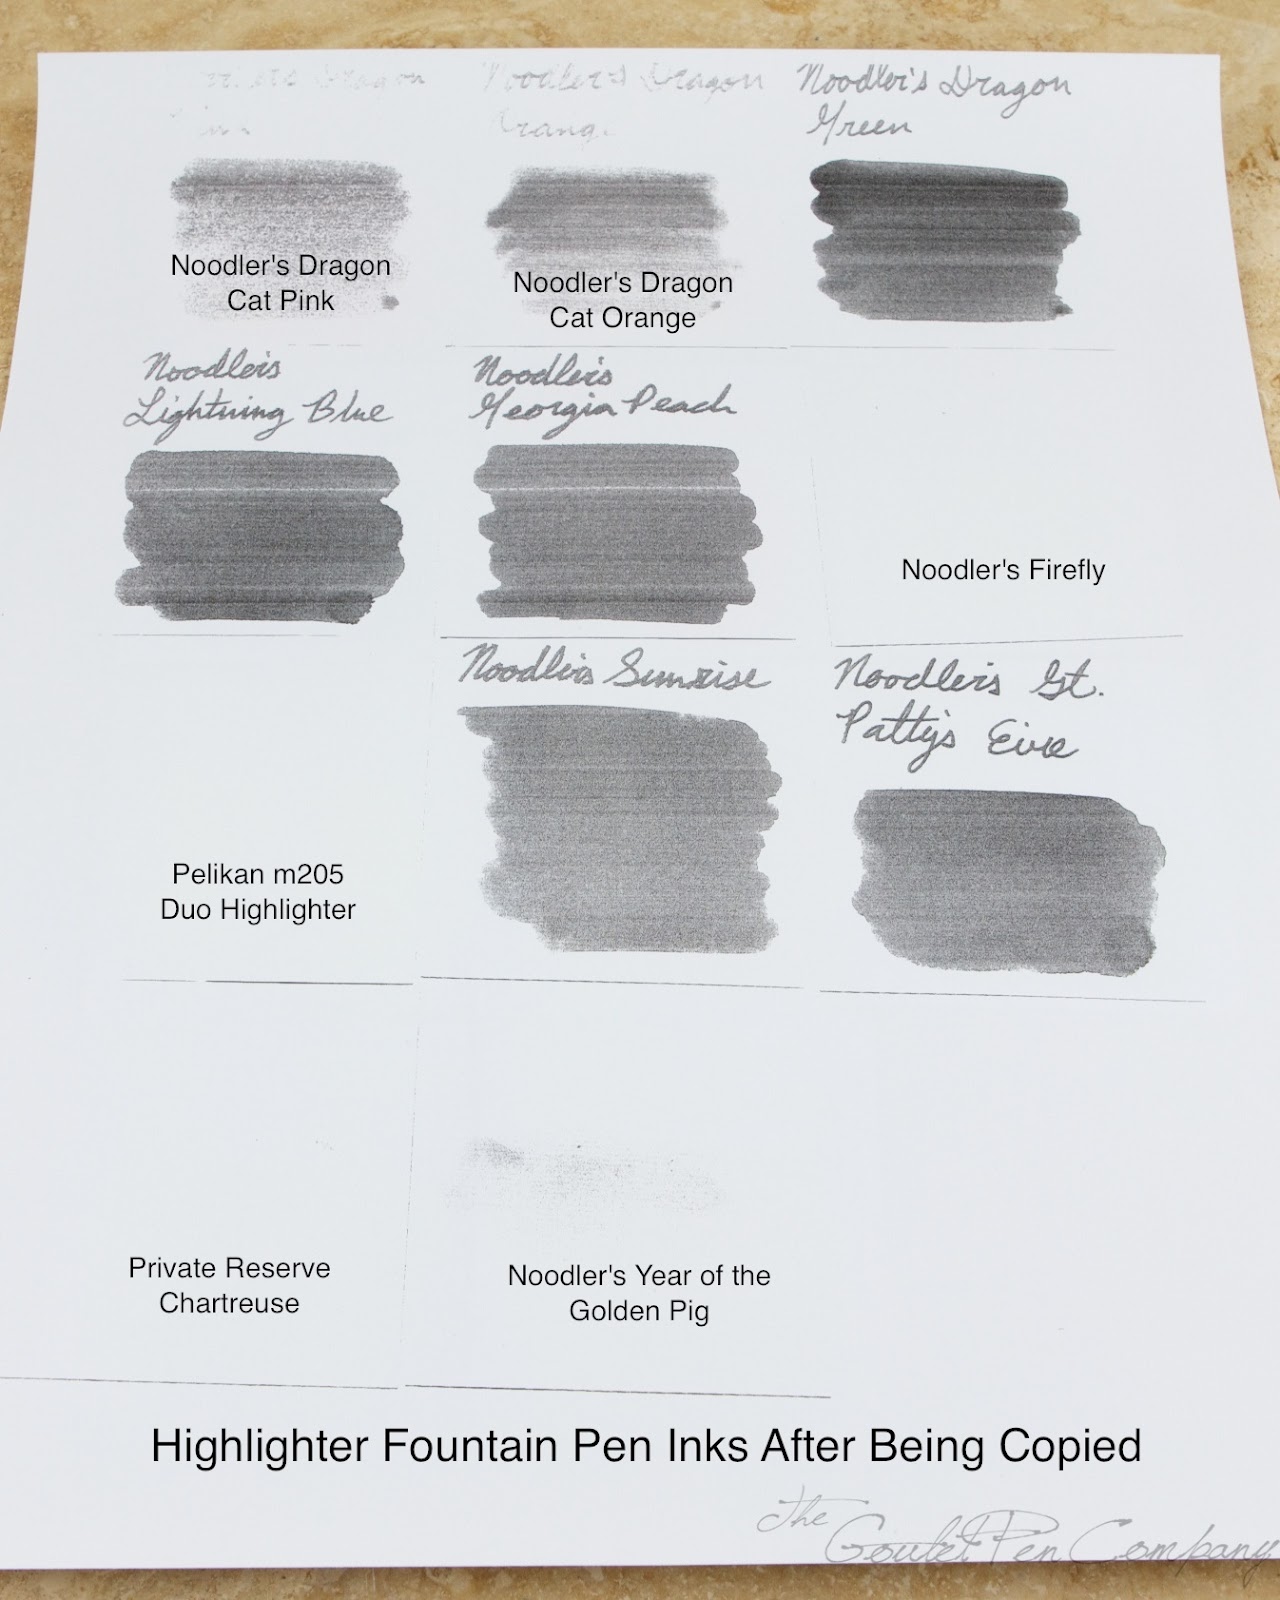 Noodler's Dragon
Noodler's Dragon
Orang
Noodler's Dragon
Green
Noodler's Dragon
Cat Pink
Noodler's Dragon
Cat Orange
Noodler's
Lightning Blue
Noodler's
Georgia Peach
Noodler's Firefly
Noodler's Sunrise
Noodler's St.
Patty's Eire
Pelikan m205
Duo Highlighter
Private Reserve
Chartreuse
Noodler's Year of the
Golden Pig
Highlighter Fountain Pen Inks After Being Copied
The
Goulet Pen Company